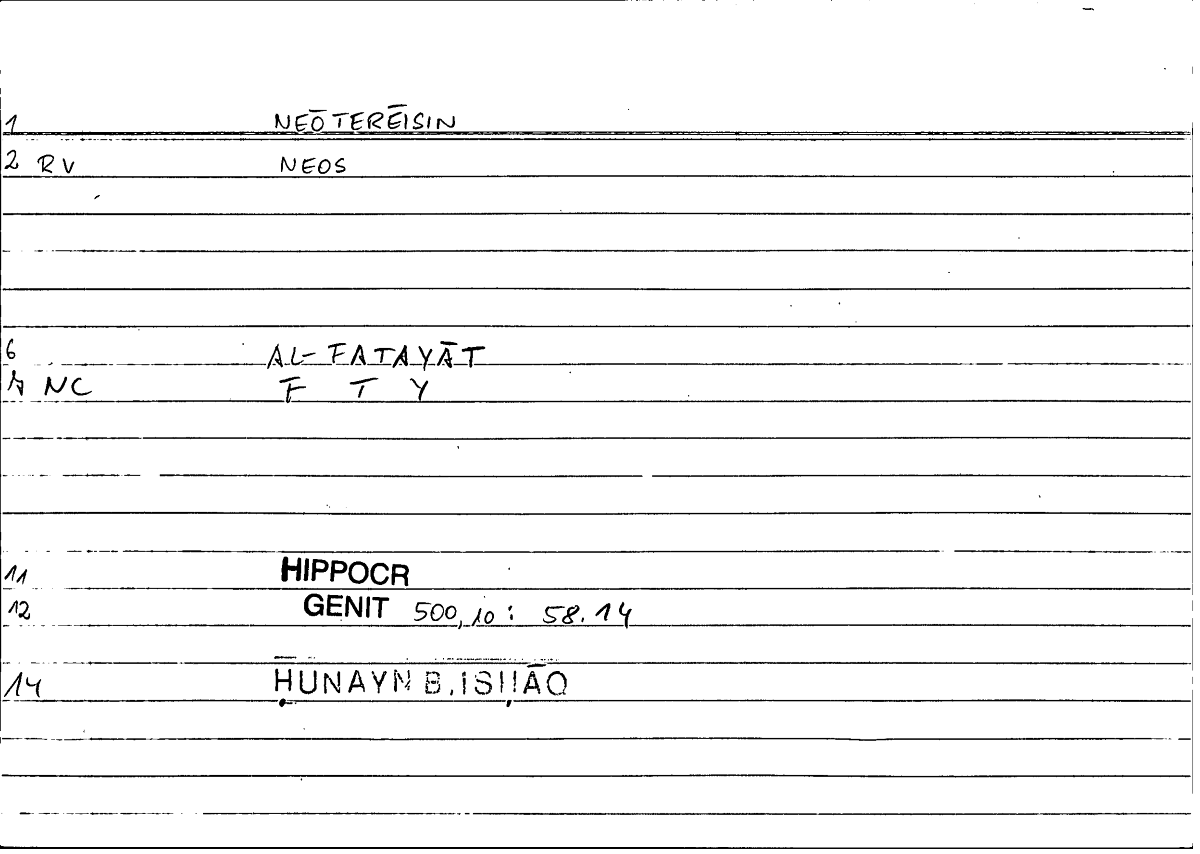 1 NEŌTERĒISIN
2 RV NEOS
6 AL-FATAYĀT
NC F T Y
11 HIPPOCR
12 GENIT 500,10: 58.14
14 ḤUNAYN B. ISḤĀQ